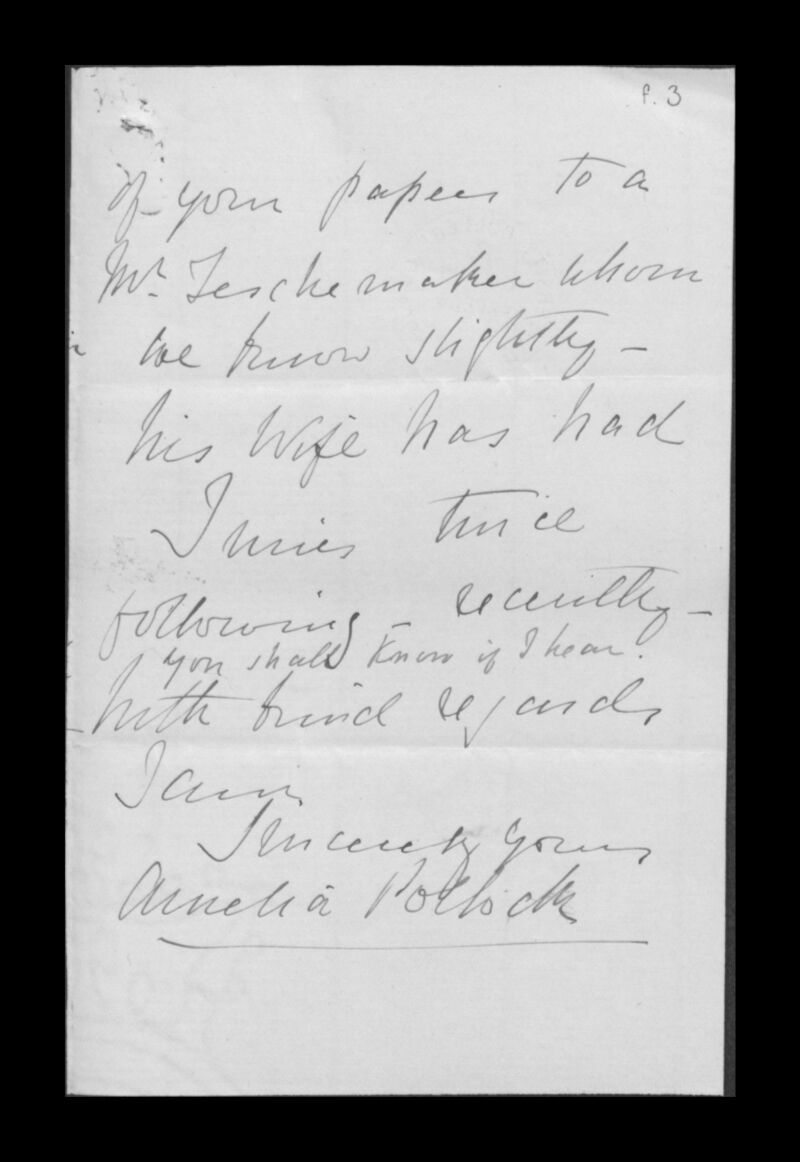 f. 3
of your papers to a
Mr. Teschemaker whom
we know slightly –
his wife has had
Twins twice
following – recently –
You shall know if I hear.
With kind regards
I am
Sincerely yours
Amelia Pollock